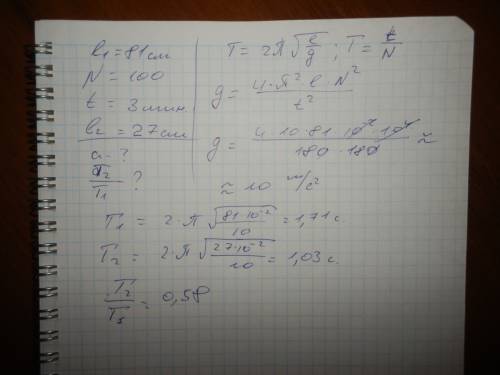 l₁ = 81 см
N = 100
t = 3 мин.
l₂ = 27 см
a - ?
T₂/T₁ ?
T = 2π√(l/g) ; T = t/N
g = 4·π²·l·N²/t²
g = 4·10·81·10⁻²·10⁴/180·180 ≈
≈ 10 м/с²
T₁ = 2·π √(81·10⁻²/10) = 1,71 с.
T₂ = 2·π √(27·10⁻²/10) = 1,03 с.
T₂/T₁ = 0,58